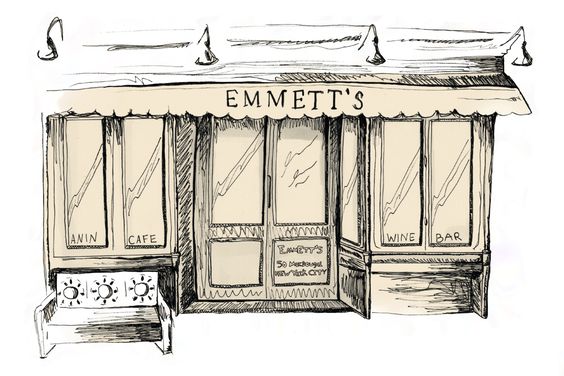 EMMETT'S
ANIN CAFE
EMMETT'S
50 MACDOUGAL
NEW YORK CITY
WINE BAR